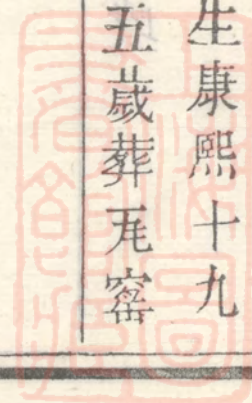 生康熙十九
五歲葬瓦窰